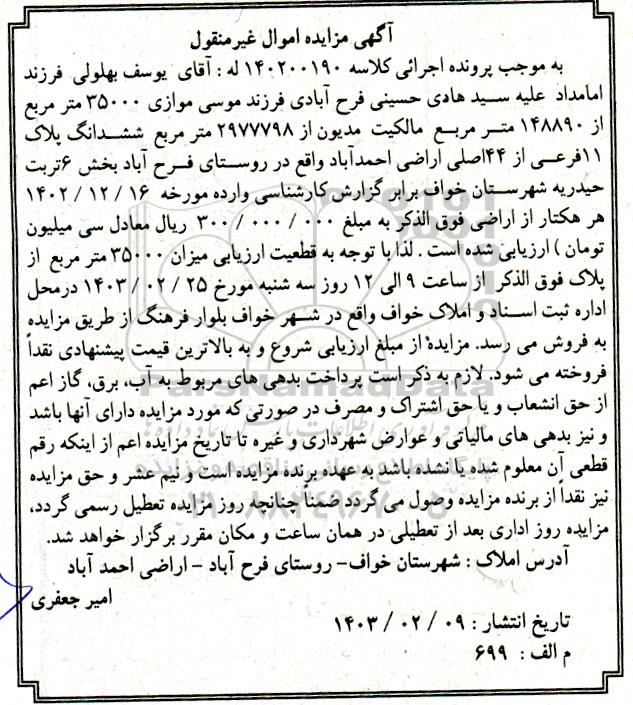 آگهی مزایده اموال غیرمنقول
به موجب پرونده اجرائی کلاسه ۱۴۰۲۰۰۱۹۰ له : آقای یوسف بهلولی فرزند
امامداد علیه سید هادی حسینی فرح آبادی فرزند موسی موازی ۳۵۰۰۰ متر مربع
از ۱۴۸۸۹۰ متر مربع مالکیت مدیون از ۲۹۷۷۷۹۸ متر مربع ششدانگ پلاک
۱۱فرعی از ۴۴اصلی اراضی احمدآباد واقع در روستای فرح آباد بخش ۶تربت
حیدریه شهرستان خواف برابر گزارش کارشناسی وارده مورخه ۱۶ / ۱۲ / ۱۴۰۲
هر هکتار از اراضی فوق الذکر به مبلغ ۰۰۰ / ۰۰۰ / ۳۰۰ ریال معادل سی میلیون
تومان ) ارزیابی شده است . لذا با توجه به قطعیت ارزیابی میزان ۳۵۰۰۰ متر مربع از
پلاک فوق الذکر از ساعت ۹ الی ۱۲ روز سه شنبه مورخ ۲۵ / ۰۲ / ۱۴۰۳ درمحل
اداره ثبت اسناد و املاک خواف واقع در شهر خواف بلوار فرهنگ از طریق مزایده
به فروش می رسد. مزایدهٔ از مبلغ ارزیابی شروع و به بالاترین قیمت پیشنهادی نقداً
فروخته می شود. لازم به ذکر است پرداخت بدهی های مربوط به آب، برق، گاز اعم
از حق انشعاب و یا حق اشتراک و مصرف در صورتی که مورد مزایده دارای آنها باشد
و نیز بدهی های مالیاتی و عوارض شهرداری و غیره تا تاریخ مزایده اعم از اینکه رقم
قطعی آن معلوم شده یا نشده باشد به عهده برنده مزایده است و نیم عشر و حق مزایده
نیز نقداً از برنده مزایده وصول می گردد ضمناً چنانچه روز مزایده تعطیل رسمی گردد،
مزایده روز اداری بعد از تعطیلی در همان ساعت و مکان مقرر برگزار خواهد شد.
آدرس املاک : شهرستان خواف– روستای فرح آباد – اراضی احمد آباد
امیر جعفری
تاریخ انتشار : ۰۹ / ۰۲ / ۱۴۰۳
م الف : ۶۹۹
ParsNamadData